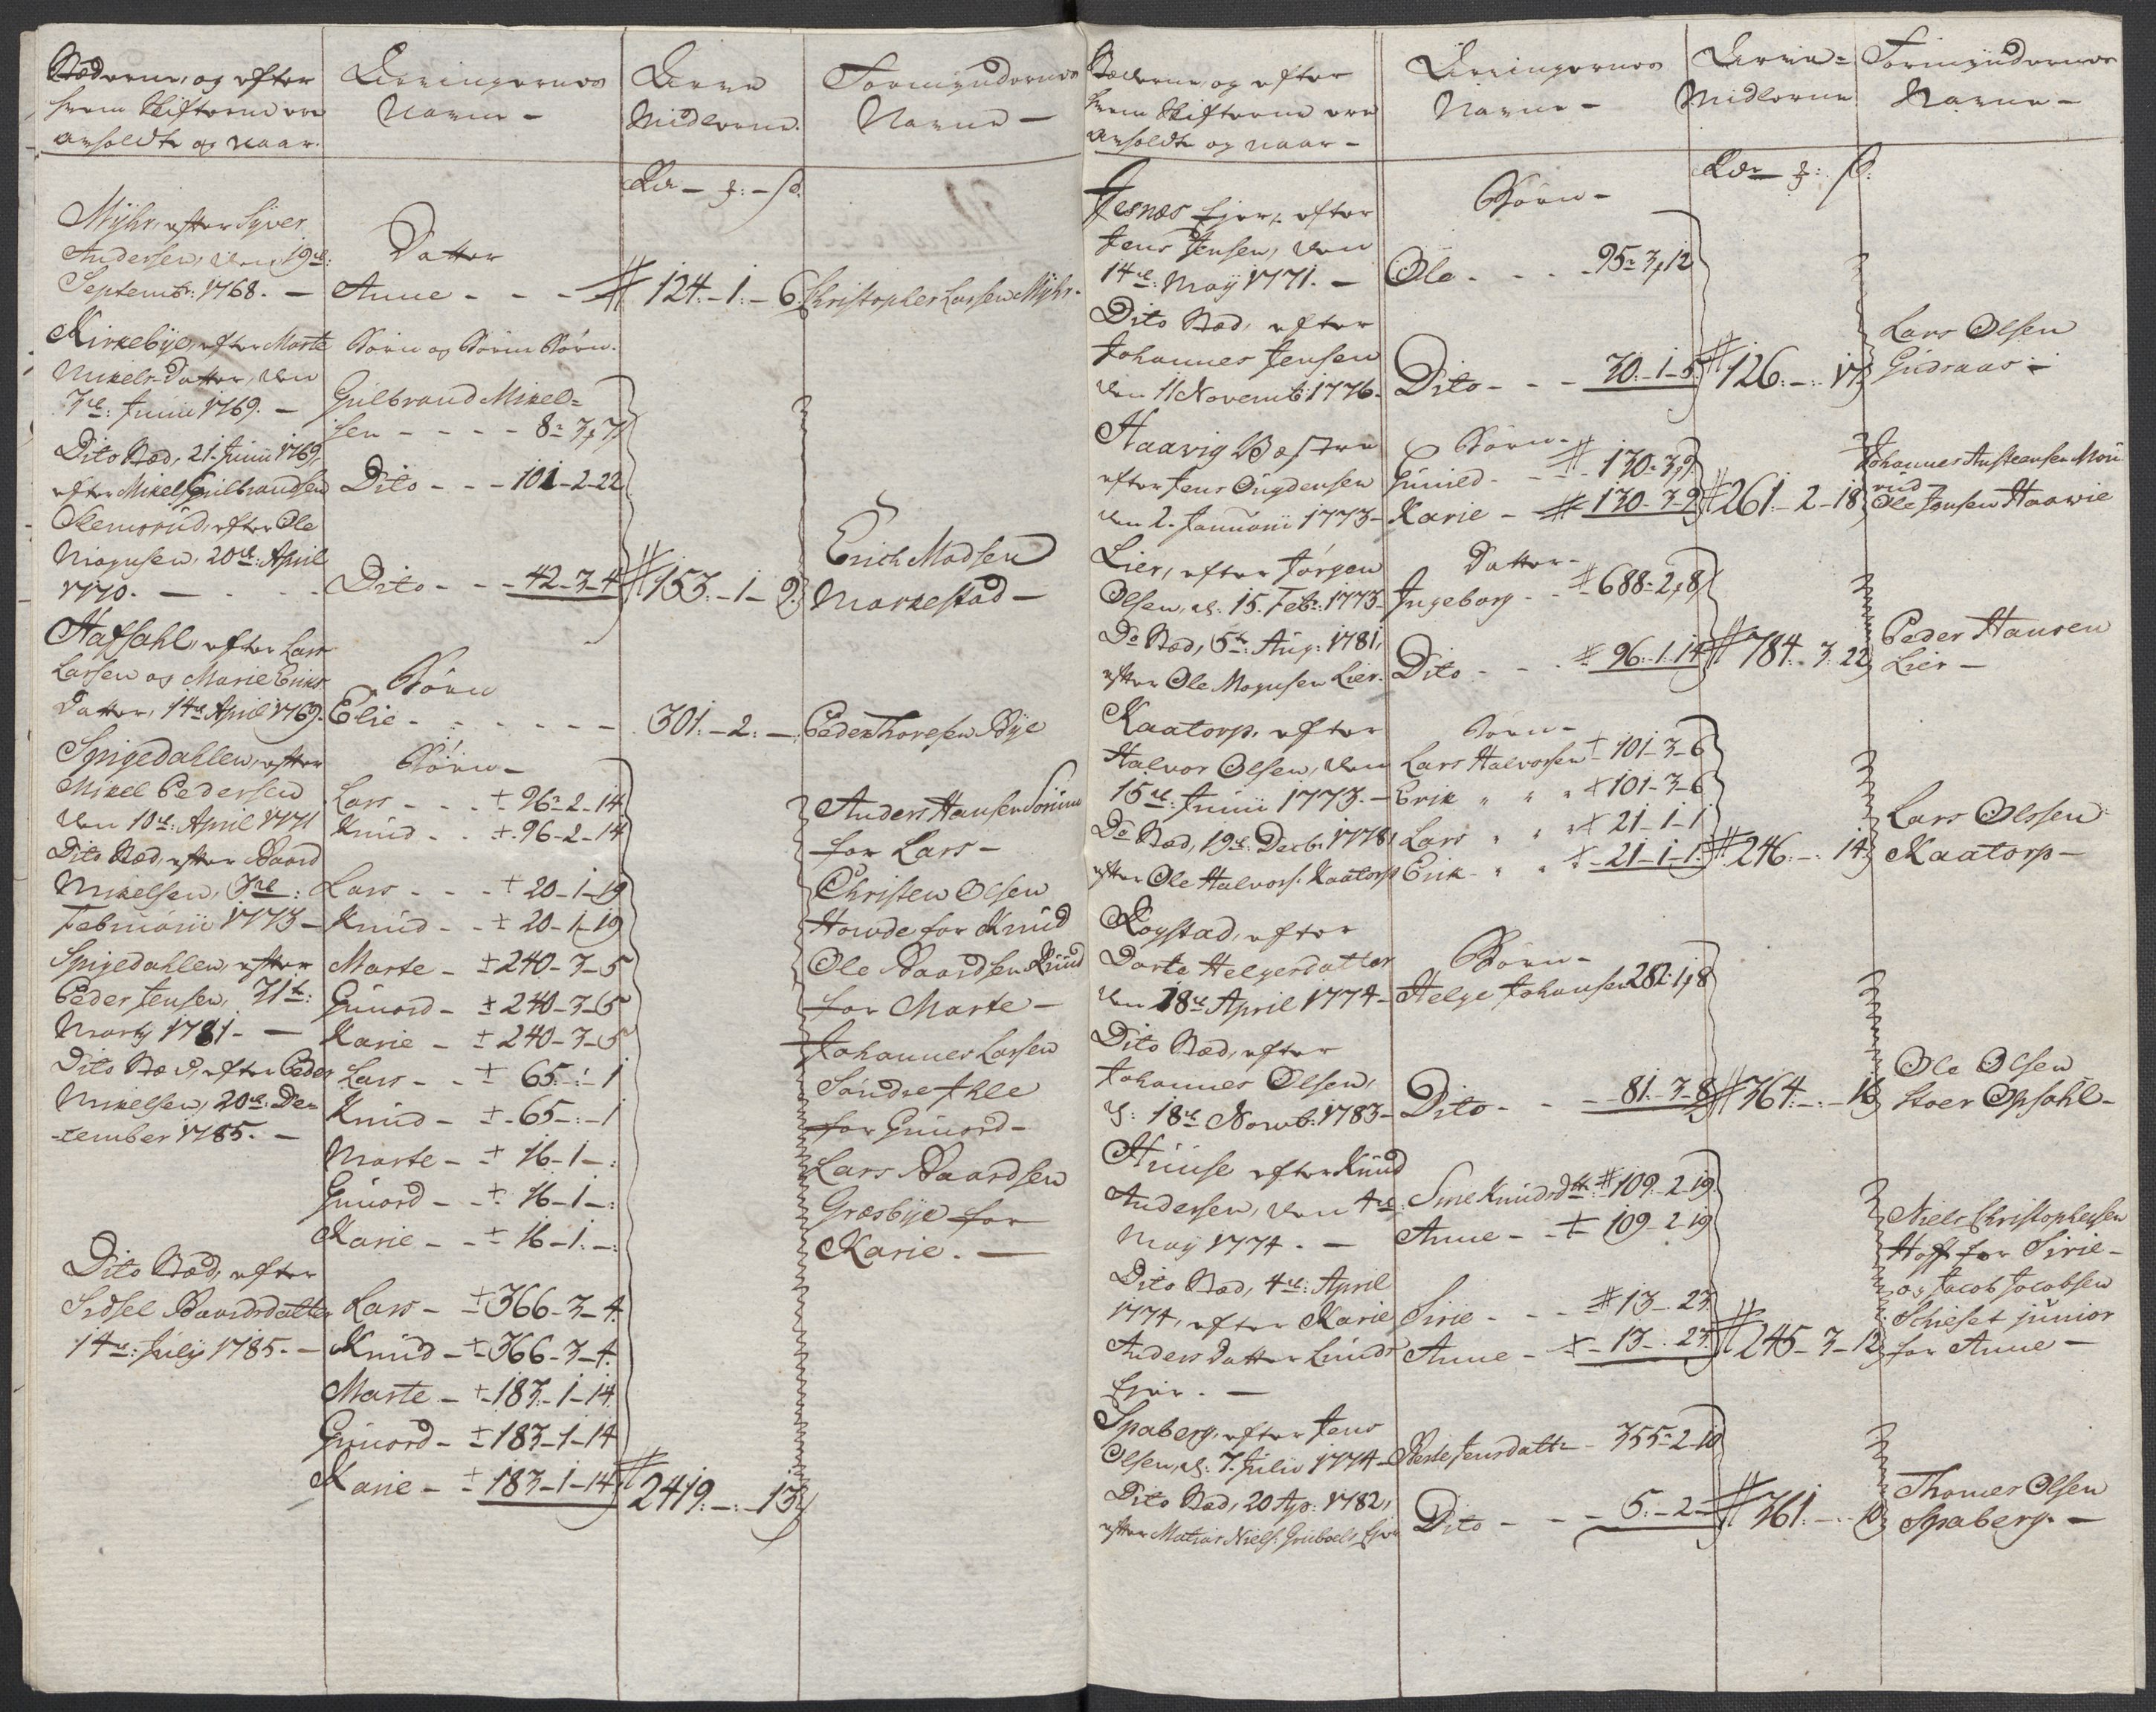 Stæderne, og efter
hvem Skifterne ere
avholdte og naar.
Arvingernes
Navne -
Arve
Midlerne.
Formyndernes
Navne -
Rdr - ƶ: - ß.
Myhr, efter Syver
Andersen, den 19de:
Septembr: 1768. -
Datter
Anne - - - 124.-1.-6. Christopher Larsen Myhr.
Kirkebye, efter Marte
Mikels-Datter, den
7de: Junii 1769. -
Børn og Børne Børn.
Gulbrand Mikel=
sen - - - - 8-3-7
Dito Stæd, 21. Junii 1769,
efter Mikel Gulbrandsen
Dito - - - 101-2-22
Olemsrud, efter Ole
Mognsen, 20de: April
1770. -
Dito - - - 42-3-4
153.-1-9.
Erich Madsen
Markestad -
Hafsahl, efter Lars
Larsen og Marie Eriks
Datter, 14de April 1769.
Børn
Elie - - - - - - 301.-2.-
Peder Thoresen Bye
Spigedahlen, efter
Mikel Pedersen
den 10de: April 1771
Børn -
Lars - - - 96-2-14
Knud - - 96-2-14
Dito Stæd, efter Baard
Mikelsen, 3de:
Februarii 1773 -
Lars - - - 20-1-19
Knud - - 20-1-19
Spigedahlen, efter
Peder Jensen, 31te:
Marty 1781 - -
Marte - 240-3-5
Gunord - 240-3-5
Karie - 240-3-5
Dito Stæd, efter Peder
Mikelsen, 20de: De=
=cember 1785. -
Lars - - 65-:-1
Knud - 65-:-1
Marte - 16-1-:
Gunord - - 16-1-:
Karie - - 16-1-:
Dito Stæd, efter
Sidsel Baardsdatter
14de: July 1785. -
Lars - 366-3-4.
Knud - 366-3-4.
Marte - 183-1-14.
Gunord - 183-1-14
Karie - 183-1-14.
2419.-:-13
Anders Hansen Sörum
for Lars -
Christen Olsen
Howde for Knud
Ole Baardsen Rund
for Marte -
Johannes Larsen
Søndre Ihle
for Gunord -
Lars Baardsen
Græsbye for
Karie. -
Stæderne og efter
hvem Skifterne ere
avholdte og naar -
Arvingernes
Navne -
Arve=
Midlerne.
Formyndernes
Navne -
Rdr - ƶ: ß.
Jesnæs Ejer, efter
Jens Jensen, den
14de: May 1771. -
Børn -
Ole - - - - 95-3,12
Dito Stæd, efter
Johannes Jensen
den 11 Novemb: 1776.
Dito - - - 30.-1-5.
126.-.-17
Lars Olsen
Gudsaas -
Haavig Wæstre
efter Jens Ougdensen
den 2. Januarii 1773 -
Børn -
Gunild - - 130-3,9
Karie - 130-3-9
261.-2-18
Johannes Austeensen Mou
rud
Ole Jensen Haavie
Lier, efter Jörgen
Olsen, d: 15. Febr: 1773 -
Datter -
Ingeborg - - 688-2,8
Do Stæd, 5te: Aug: 1781,
efter Ole Mognsen Lier.
Dito - - - 96.-1-14
784.-3.22
Peder Hansen
Lier -
Kaatorp, efter
Halvor Olsen, den
15de: Junii 1773. -
Børn -
Lars Halvorsen 101-3-6
Erik " " " 101-3-6
Do Stæd, 19de: Decb: 1778,
efter Ole Halvors. Kaatorp
Lars " " " 21-1-1
Erik " " 21-1-1.
246.-:.14
Lars Olssen
Kaatorp -
Rogstad, efter
Dorte Helgesdatter
den 18de April 1774 -
Børn -
Helge Johansen 282.1,8
Dito Stæd, efter
Johannes Olsen,
d: 18de Novemb: 1783 -
Dito - - - 81.-3-8
364.-:-16
Ole Olsen
Stoer Opsahl -
Huuse efter Knud
Andersen, den 4de:
May 1774. -
Sirie Knudsdtt: 109.-2-19.
Anne - - 109-2-19
Dito Stæd, 4de: April
1774, efter Karie
Anders Datter Lunds
Ejer. -
Sirie - - - 13-.-23.
Anne - 13-.-23.
245-3-12
Niels Christophersen
Hoff for Sirie -
og Jacob Jacobsen
Schieset junior
for Anne -
Spaberg, efter Jens
Olsen, d: 7. Julii 1774 -
Berte Jensdattr - 355-2-10
Dito Stæd, 20 Ap: 1782,
efter Matias Niels. Ejer
Dito - - - 5.-2-
361.-.-10
Thomes Olsen
Spaberg. -